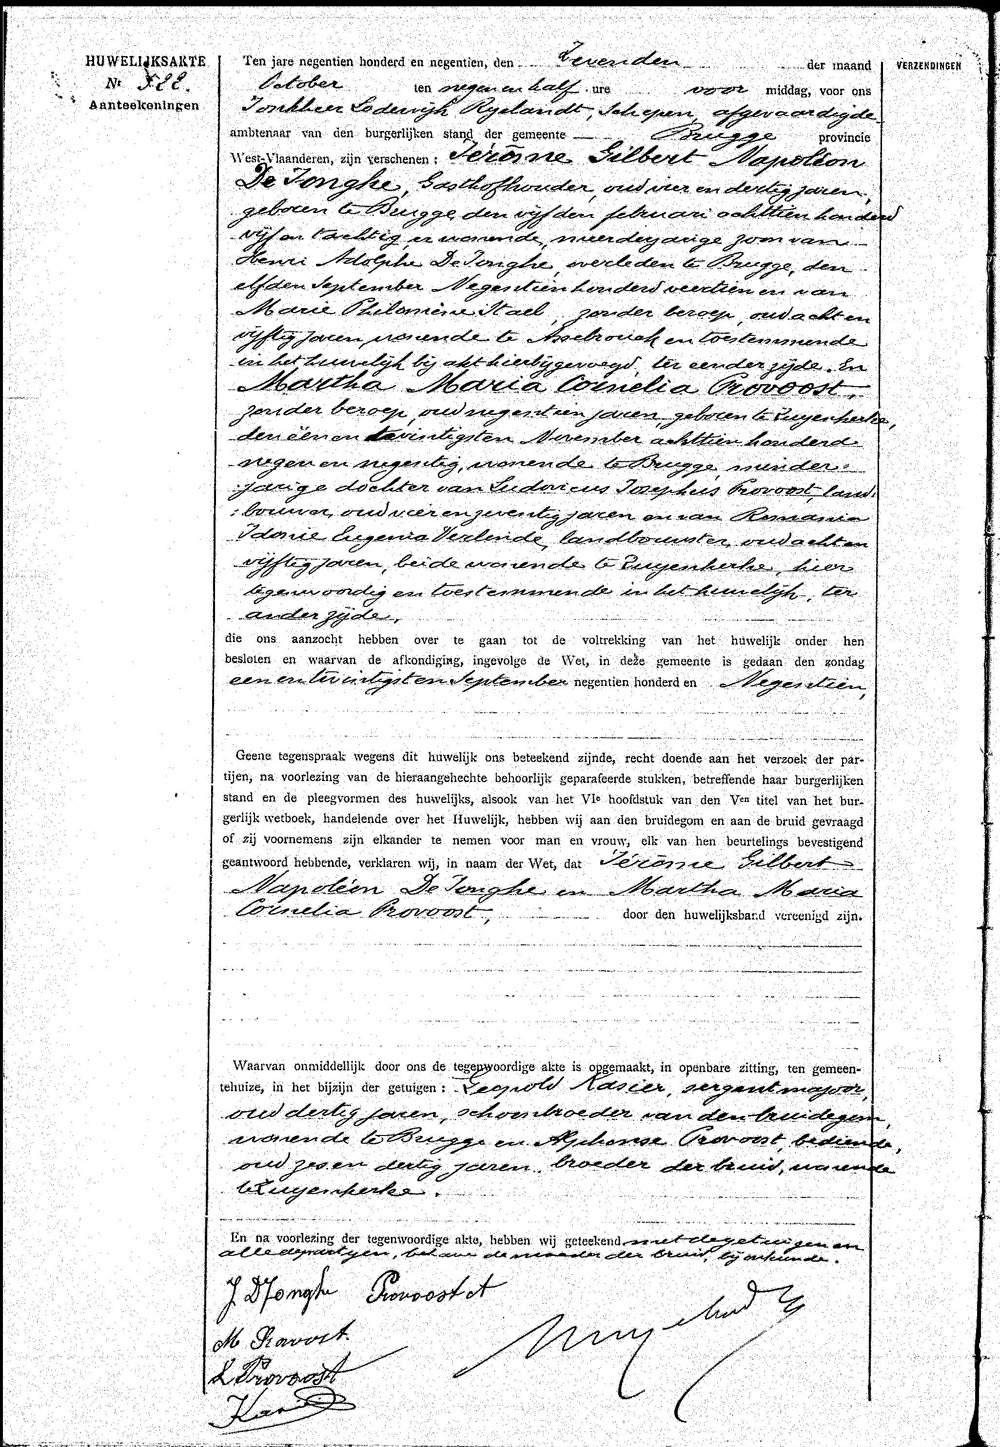 HUWELIJKSAKTE
Nr 522.
Aanteekeningen
VERZENDINGEN
Ten jare negentien honderd en negentien, den Zevenden der maand
October ten negen en half ure voor middag, voor ons
Jonkheer Lodewijk Ryelandt, Schepen, afgevaardigde
ambtenaar van den burgerlijken stand der gemeente Brugge provincie
West-Vlaanderen, zijn verschenen : Jérôme Gilbert Napoléon
De Jonghe, Gasthofhouder, oud vier en dertig jaren,
geboren te Brugge den vijfden februari achttien honderd
vijf en tachtig, er wonende, meerderjarige zoon van
Henri Adolphe De Jonghe, overleden te Brugge, den
elfden September Negentienhonderd veertien en van
Marie Philomène Stael, zonder beroep, oud acht en
vijftig jaren, wonende te Assebrouck en toestemmende
in het huwelijk bij akt hierbijgevoegd, ter eender zijde. En
Martha Maria Cornelia Provoost,
zonder beroep, oud negentien jaren, geboren te Zuyenkerke,
den éen en twintigsten November achttien honderd
negen en negentig, wonende te Brugge, minder-
jarige dochter van Ludovicus Josephus Provoost, land-
bouwer, oud vier en zeventig jaren en van Romania
Idonie Eugenia Verlinde, landbouwster, oud acht en
vijftig jaren, beide wonende te Zuyenkerke, hier
tegenwoordig en toestemmende in het huwelijk, ter
ander zijde,
die ons aanzocht hebben over te gaan tot de voltrekking van het huwelijk onder hen
besloten en waarvan de afkondiging, ingevolge de Wet, in deze gemeente is gedaan den zondag
een en twintigsten September negentien honderd en Negentien,
Geene tegenspraak wegens dit huwelijk ons beteekend zijnde, recht doende aan het verzoek der par-
tijen, na voorlezing van de hieraangehechte behoorlijk geparafeerde stukken, betreffende haar burgerlijken
stand en de pleegvormen des huwelijks, alsook van het VIe hoofdstuk van den Ven titel van het bur-
gerlijk wetboek, handelende over het Huwelijk, hebben wij aan den bruidegom en aan de bruid gevraagd
of zij voornemens zijn elkander te nemen voor man en vrouw, elk van hen beurtelings bevestigend
geantwoord hebbende, verklaren wij, in naam der Wet, dat Jérôme Gilbert
Napoléon De Jonghe en Martha Maria
Cornelia Provoost, door den huwelijksband vereenigd zijn.
Waarvan onmiddellijk door ons de tegenwoordige akte is opgemaakt, in openbare zitting, ten gemeen-
tehuize, in het bijzijn der getuigen : Leopold Kasier, sergent majoor,
oud dertig jaren, schoonbroeder van den bruidegom,
wonende te Brugge en Alphonse Provoost, bediende,
oud zes en dertig jaren, broeder der bruid, wonende
te Zuyenkerke.
En na voorlezing der tegenwoordige akte, hebben wij geteekend met de getuigen en
alle departijen, behalve de moeder der bruid, bij oirkunde.
J DJonghe Provoost A
M Provoost.
L Provoost